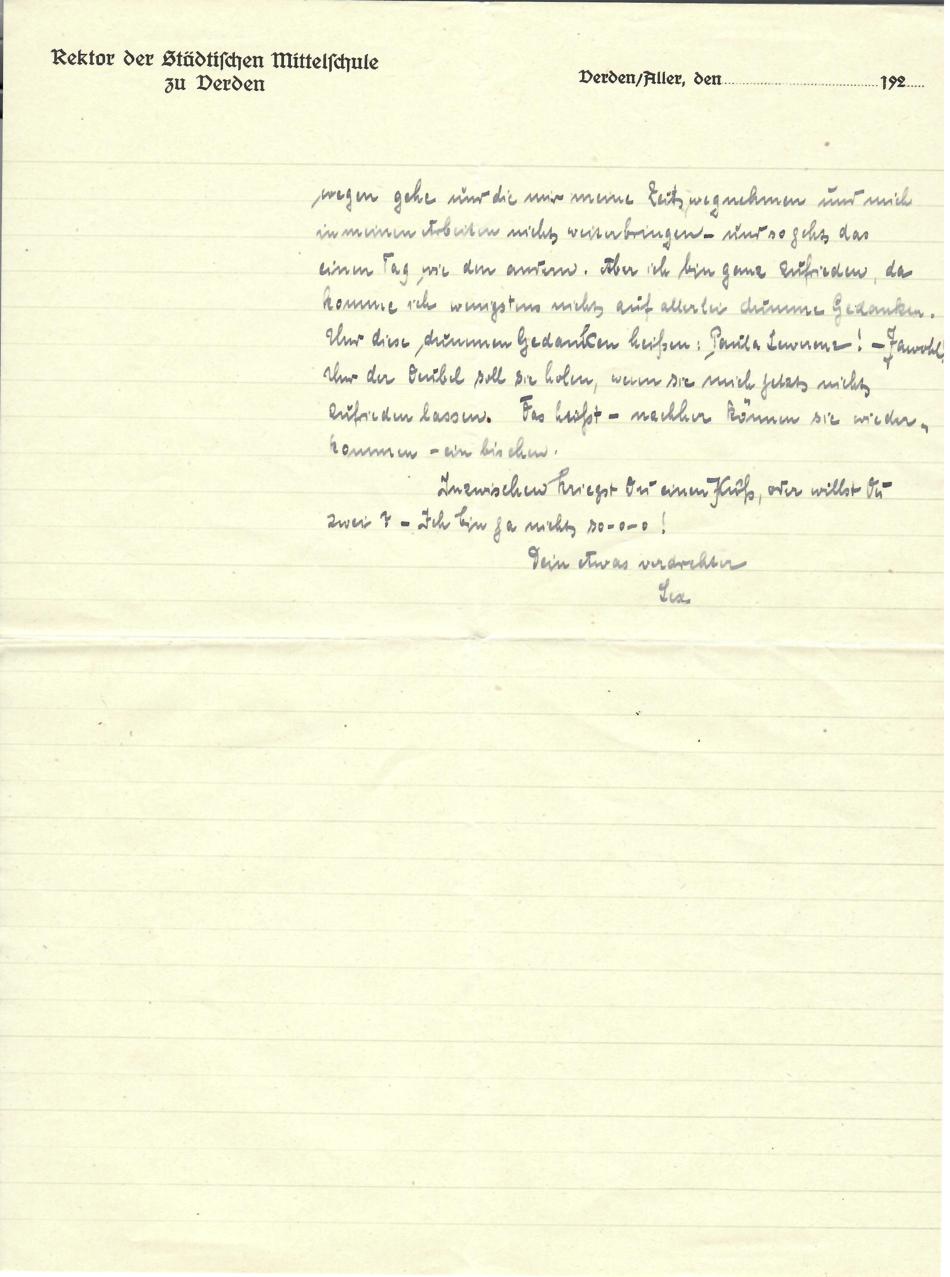 Rektor der Städtischen Mittelschule
zu Verden
Verden/Aller, den 192
wegen gehe und die mir meine Zeit wegnehmen und mich
in meinen Arbeiten nicht weiterbringen – und so geht das
einen Tag wie den andern. Aber ich bin ganz zufrieden, da
komme ich wenigstens nicht auf allerlei dumme Gedanken.
Und diese dummen Gedanken heißen: Paula Lewerenz! – Jawohl!
Und der Deubel soll sie holen, wenn sie mich jetzt nicht
zufrieden lassen. Das heißt – nachher können sie wieder-
kommen – ein bischen.
Inzwischen kriegst Du einen Kuß, oder willst Du
zwei? – Ich bin ja nicht so-o-o!
Dein etwas verdrehter
Lex